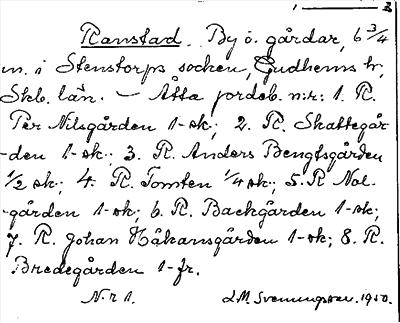 Ranstad. By o. gårdar, 6 3/4
m. i Stenstorps socken, Gudhems hr,
Skb. län. — Åtta jordeb. n:r: 1. R.
Per Nilsgården 1-sk; 2. R. Skattegår
-den 1-sk; 3. R. Anders Bengtsgården
1/2 sk; 4. R. Tomten 1/4 sk; 5. R Nol-
gården 1-sk; 6. R. Backgården 1-sk;
7. R. Johan Håkansgården 1-sk; 8. R.
Bredegården 1-fr.
N:r 1. L.M. Svenungsson. 1950.